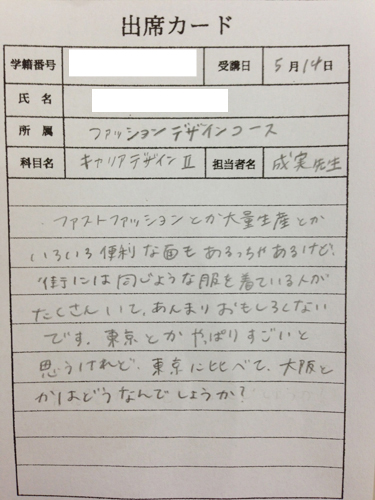 出席カード
学籍番号 受講日 5月14日
氏 名
所 属 ファッションデザインコース
科目名 キャリアデザインⅡ 担当者名 成実先生
ファストファッションとか大量生産とか
いろいろ便利な面もあるっちゃあるけど、
街には同じような服を着ている人が
たくさんいて、あんまりおもしろくない
です。東京とかやっぱりすごいと
思うけれど、東京に比べて、大阪と
かはどうなんでしょうか?